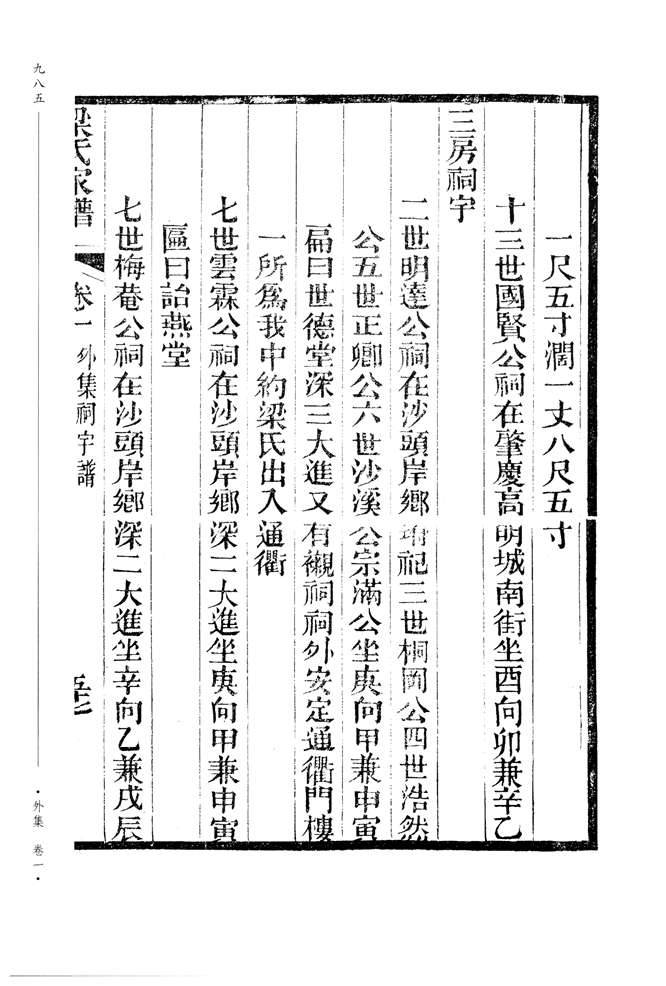 一尺五寸濶一丈八尺五寸
十三世國賢公祠在肇慶高明城南街坐酉向卯兼辛乙
三房祠宇
二世明達公祠在沙頭岸鄉祔祀三世桐岡公四世浩然
公五世正卿公六世沙溪公宗滿公坐庚向甲兼申寅
扁曰世德堂深三大進又有襯祠祠外安定通衢門樓
一所爲我中約梁氏出入通衢
七世雲霖公祠在沙頭岸鄉深二大進坐庚向甲兼申寅
匾曰詒燕堂
七世梅菴公祠在沙頭岸鄉深二大進坐辛向乙兼戌辰
梁氏家譜 卷一 外集祠宇譜 五十七
九八五
·外集 卷一·